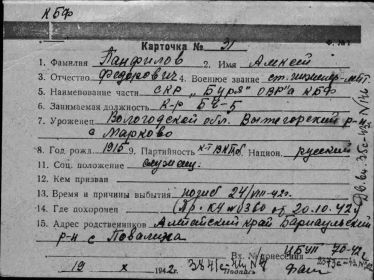 КБФ
Карточка № 31
Ф. № 1
1. Фамилия Панфилов 2. Имя Алексей
3. Отчество Федорович 4. Военное звание ст. инженер-лейт.
5. Наименование части СКР „Буря" ОВР'а КБФ
6. Занимаемая должность К-р БЧ-5
7. Уроженец Вологодской обл. Вытегорский р-н
с Марково
8. Год рожд. 1915 9. Партийность к-т ВКП/б. Национ. русский
11. Соц. положение служащ.
12. Кем призван
13. Время и причины выбытия погиб 24/VIII-42г.
14. Где похоронен (Пр. КУ № 030 от 20.10.42г.)
15. Адрес родственников Алтайский край Барнаульский
р-н с Повалиха
Вх. № донесения ЦБУП 70-42г.
19 X 1942 г.
Подпись